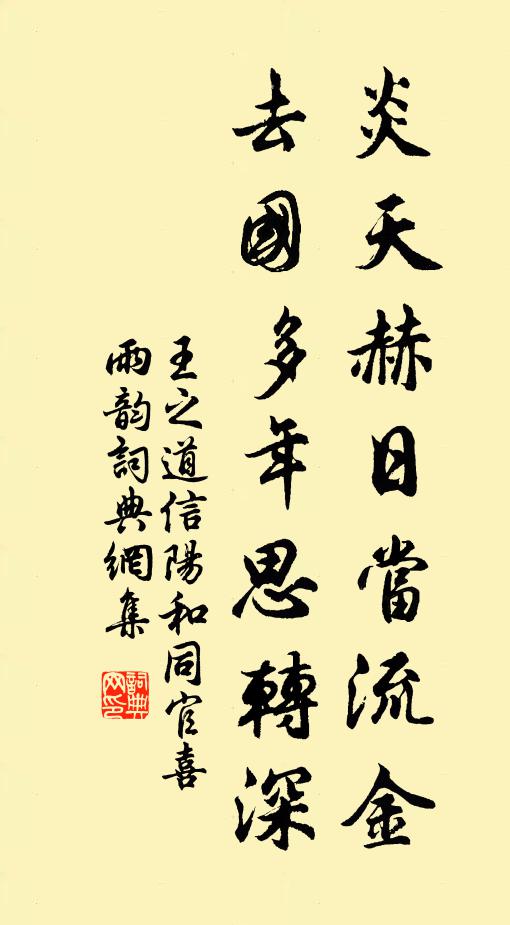 炎天赫日當流金
去國多年思轉深
王之道信陽和同官喜
雨韵詞典網集
詞典網印